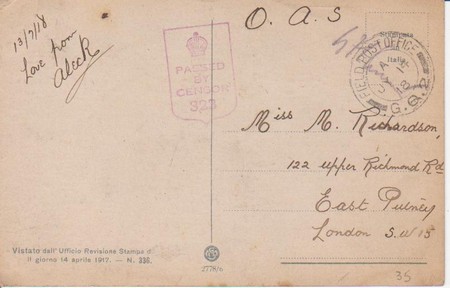 13/7/18
Love from
Aleck
O. A. S
PASSED
BY
CENSOR
323
FIELD POST OFFICE
G.Q.2
Miss M. Richardson,
122 Upper Richmond Rd
East Putney
London S.W 15
Vistato dall' Ufficio Revisione Stampa
il giorno 14 aprile 1917. — N. 336.
2778/6
35